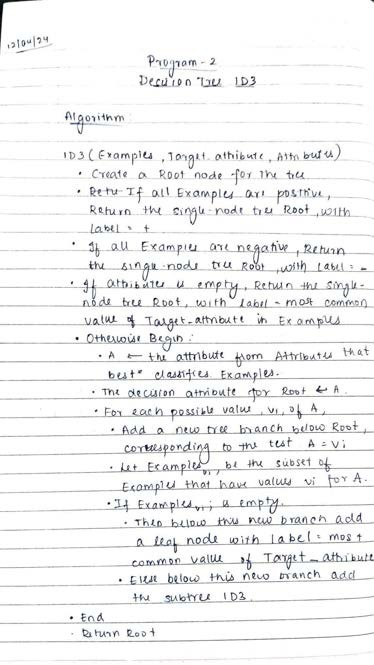 12/04/24
Program - 2
Decision Tree ID3
Algorithm:
ID3 (Examples, Target-attribute, Attributes)
• Create a Root node for the tree
• Retu If all Examples are positive,
Return the single-node tree Root, with
label = +
• If all Examples are negative, Return
the single-node tree Root, with Label = -
• If attributes is empty, Return the single-
node tree Root, with label - most common
value of Target-attribute in Examples
• Otherwise Begin:
• A ← the attribute from Attributes that
best* classifies Examples.
• The decision attribute for Root ← A.
• For each possible value, vi, of A,
• Add a new tree branch below Root,
corresponding to the test A = Vi
• Let Examples vi, be the subset of
Examples that have values vi for A.
• If Examples vi; is empty.
• Then below this new branch add
a leaf node with label = most
common value of Target_attribute
• Else below this new branch add
the subtree ID3.
• End
• Return Root